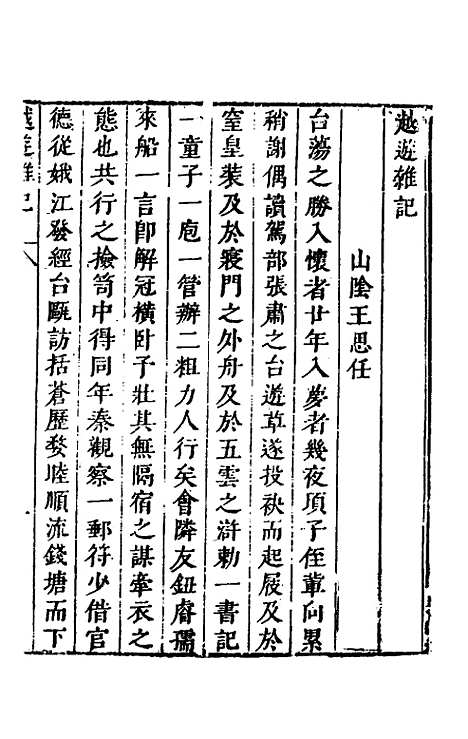 越遊雜記
山陰王思任
台蕩之勝入懷者廿年入夢者幾夜項子侄輩向累
稍謝偶讀駕部張肅之台遊草遂投袂而起屐及於
窒皇裝及於寢門之外舟及於五雲之滸勅一書記
一童子一庖一管辦二粗力人行矣會隣友鈕睿孺
來船一言卽解冠橫卧子壯其無隔宿之謀牽衣之
態也共行之撿笥中得同年秦觀察一郵符少借官
德從娥江發經台甌訪括蒼歷婺睦順流錢塘而下
越遊雜記 一